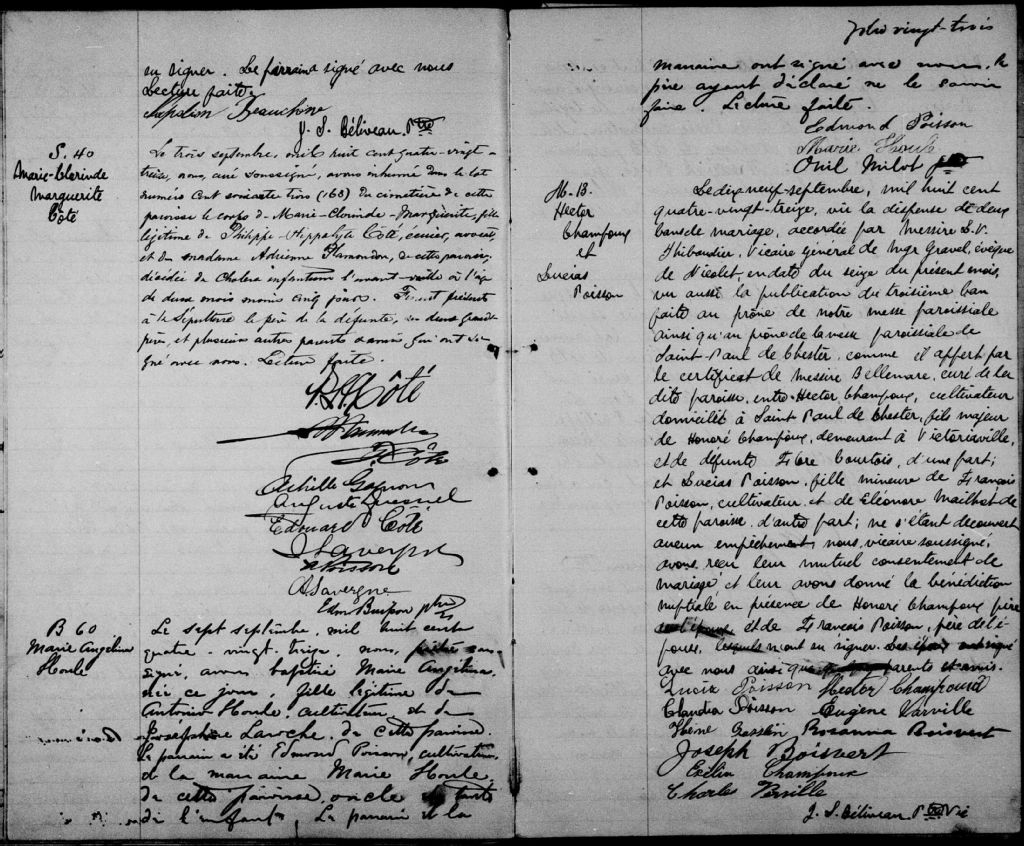 en signer. Le parrain a signé avec nous
Lecture faite.
Napoléon Beauchène
J. S. Béliveau Ptre
S. 40
Marie-Clorinde
Marguerite
Côté
Le trois septembre, mil huit cent quatre-vingt-
treize, nous, curé soussigné, avons inhumé dans le lot
numéro cent soixante trois (163) du cimetière de cette
paroisse le corps de Marie-Clorinde-Marguerite, fille
légitime de Philippe-Hippolyte Côté, écuier, avocat,
et de madame Adrienne Plamondon, de cette paroisse,
décédée du Cholera infantum l'avant-veille à l'âge
de deux mois moins cinq jours. Furent présents
à la sépulture le père de la défunte, ses deux grand-
père, et plusieurs autres parents & amis qui ont si-
gné avec nous. Lecture faite.
P. H. Côté
Côté
Achille Gagnon
Auguste Quesnel
Edouard Côté
J. Lavergne
Poisson
A Lavergne
Edm Buisson ptre
B 60
Marie Angelina
Houle
Le sept septembre, mil huit cent
quatre-vingt-treize, nous, prêtre sous-
signé, avons baptisé Marie Angelina,
née ce jour, fille légitime de
Antonio Houle, cultivateur et de
Josephine Laroche, de cette paroisse.
Le parrain a été Edmond Poisson, cultivateur,
et la marraine Marie Houle
de cette paroisse, oncle et tante
de l'enfant. Le parrain et la
Folio vingt-trois
marraine ont signé avec nous, le
père ayant déclaré ne le savoir
faire. Lecture faite.
Edmond Poisson
Marie Houle
Ovil Milot ptre
M-18.
Hector
Champoux
et
Lucias
Poisson
Le dix neuf-septembre, mil huit cent
quatre-vingt-treize, vu la dispense de deux
bans de mariage, accordée par Messire S.V.
Thibaudier, Vicaire général de Mgr Gravel, évêque
de Nicolet, en date du seize du présent mois,
vu aussi la publication du troisième ban
faite au prône de notre messe paroissiale
ainsi qu'au prône de la messe paroissiale de
Saint-Paul de Chester, comme il appert par
le certificat de Messire Bellemare, curé de la
dite paroisse, entre Hector Champoux, cultivateur
domicilié à Saint Paul de Chester, fils majeur
de Honoré Champoux, demeurant à Victoriaville,
et de défunte Courtois, d'une part;
et Lucias Poisson, fille mineure de François
Poisson, cultivateur et de Eléonore Mailhot de
cette paroisse, d'autre part; ne s'étant découvert
aucun empêchement, nous, vicaire soussigné,
avons reçu leur mutuel consentement de
mariage et leur avons donné la bénédiction
nuptiale en présence de Honoré Champoux père
et de François Poisson, père de l'é-
pouse, lesquels n'ont su signer. Les époux ont signé
avec nous ainsi que parents et amis.
Lucia Poisson Hector Champoux
Claudia Poisson Eugène Varville
Gosselin Rosanna Boisvert
Joseph Boisvert
Exilia Champoux
Charles Varville
J. S. Béliveau Ptre Vic